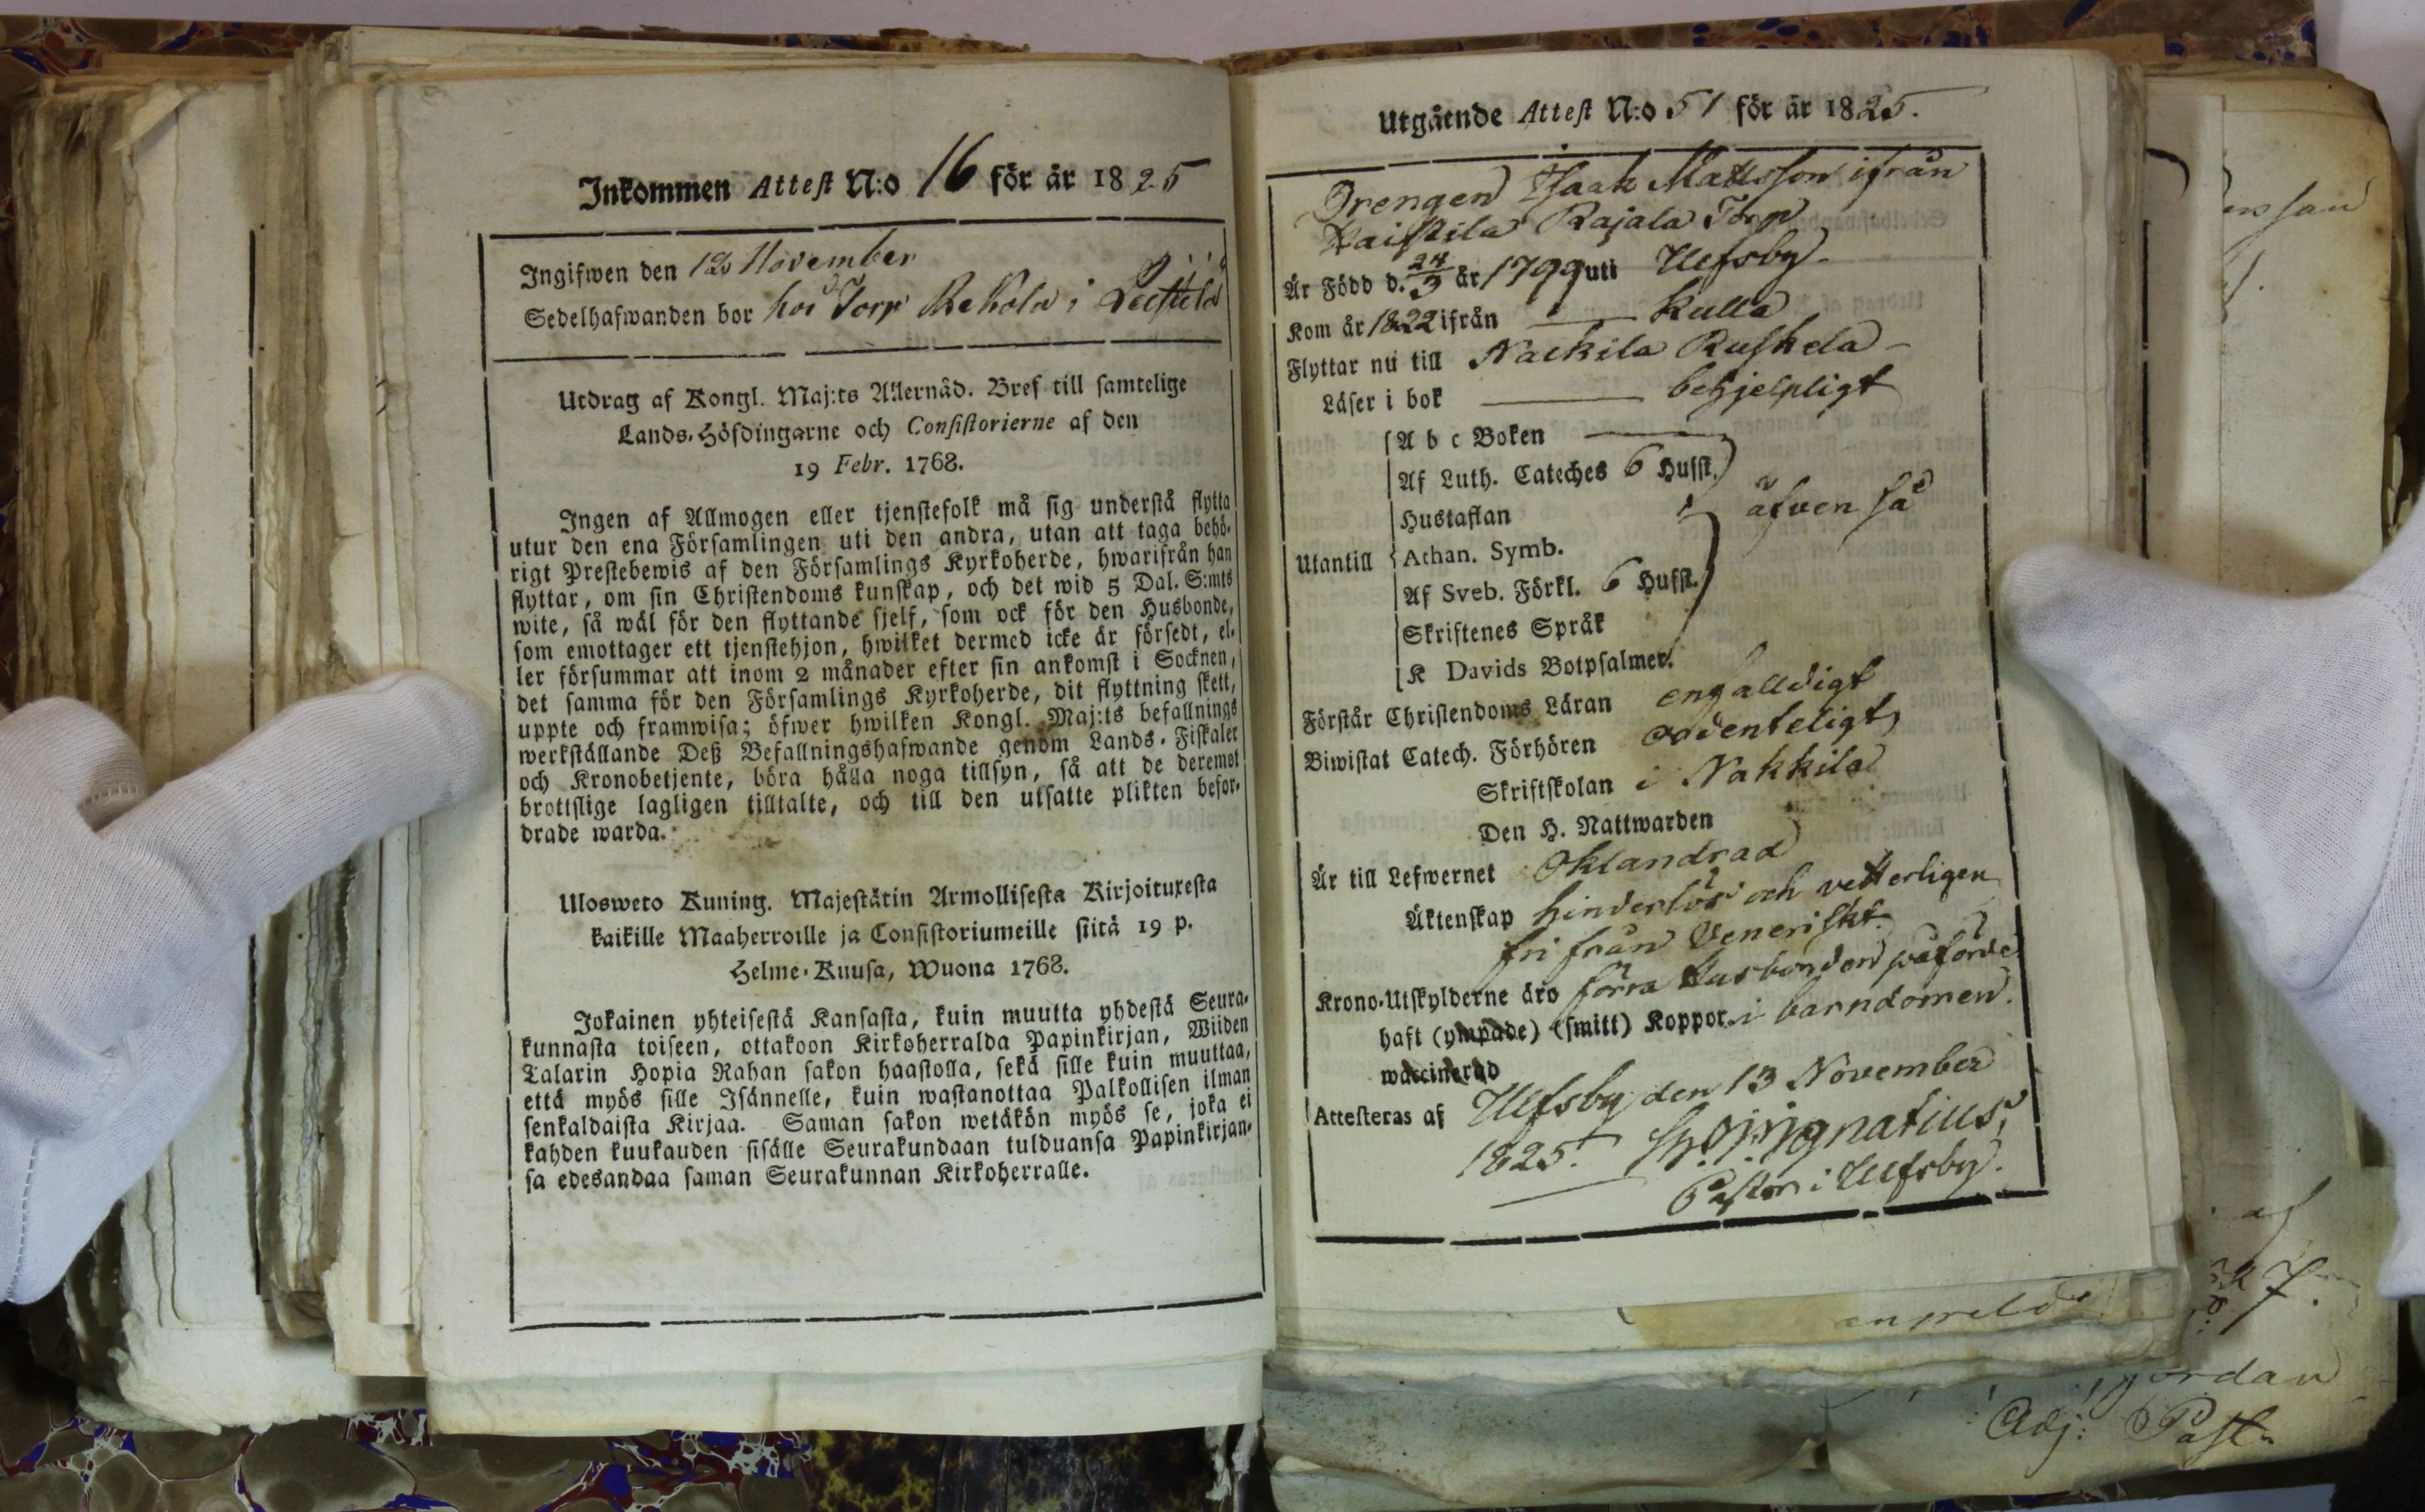 Inkommen Attest N:o 16 för år 1825
Ingifwen den 18 November
Sedelhafwanden bor hos Torp i
Utdrag af Kongl. Maj:ts Allernåd. Bref till samtelige
Lands-Höfdingarne och Consistorierne af den
19 Febr. 1768.
Ingen af Allmogen eller tjenstefolk må sig understå flytta
utur den ena Församlingen uti den andra, utan att taga behö-
rigt Prestebewis af den Församlings Kyrkoherde, hwarifrån han
flyttar, om sin Christendoms kunskap, och det wid 5 Dal. S:mts
wite, så wäl för den flyttande sjelf, som ock för den Husbonde,
som emottager ett tjenstehjon, hwilket dermed icke är försedt, el-
ler försummar att inom 2 månader efter sin ankomst i Socknen,
det samma för den Församlings Kyrkoherde, dit flyttning skett,
uppte och framwisa; öfwer hwilken Kongl. Maj:ts befallnings
werkställande Deß Befallningshafwande genom Lands-Fiskaler
och Kronobetjente, böra hålla noga tillsyn, så att de deremot
brottslige lagligen tilltalte, och till den utsatte plikten befor-
drade warda.
Ulosweto Kuning. Majestätin Armollisesta Kirjoituxesta
kaikille Maaherroille ja Consistoriumeille siitä 19 p.
Helme-Kuusa, Wuona 1768.
Jokainen yhteisestä Kansasta, kuin muutta yhdestä Seura-
kunnasta toiseen, ottakoon Kirkoherralda Papinkirjan, Wiiden
Talarin Hopia Rahan sakon haastolla, sekä sille kuin muuttaa,
että myös sille Isännelle, kuin wastanottaa Palkollisen ilman
senkaldaista Kirjaa. Saman sakon wetäkön myös se, joka ei
kahden kuukauden sisälle Seurakundaan tulduansa Papinkirjan-
sa edesandaa saman Seurakunnan Kirkoherralle.
Utgående Attest N:o 51 för år 1825.
Drengen Isaak Mattsson ifrån
Haistila Rajala Torp
Är Född d. 24/3 år 1799 uti Ulfsby
Kom år 1822 ifrån Kulla
Flyttar nu till Nackila Ruskela
Läser i bok behjelpligt
A b c Boken
Af Luth. Cateches 6 Husst.
Hustaflan äfven så
Utantill Athan. Symb.
Af Sveb. Förkl. 6 Husst.
Skriftenes Språk
K Davids Botpsalmer.
Förstår Christendoms Läran enfalldigt
Biwistat Catech. Förhören ordenteligt
Skriftskolan i Nakkila
Den H. Nattwarden
Är till Lefwernet Oklandrad
Äktenskap hinderlös och vetterligen
fri från Veneriskt.
Krono-Utskylderne äro förra Husbonden påförde
haft (ympade) (smitt) Koppor i barndomen.
waccinerad
Attesteras af Ulfsby den 13 November
1825. Ignatius,
Pastor i Ulfsby.
Adj: Past.